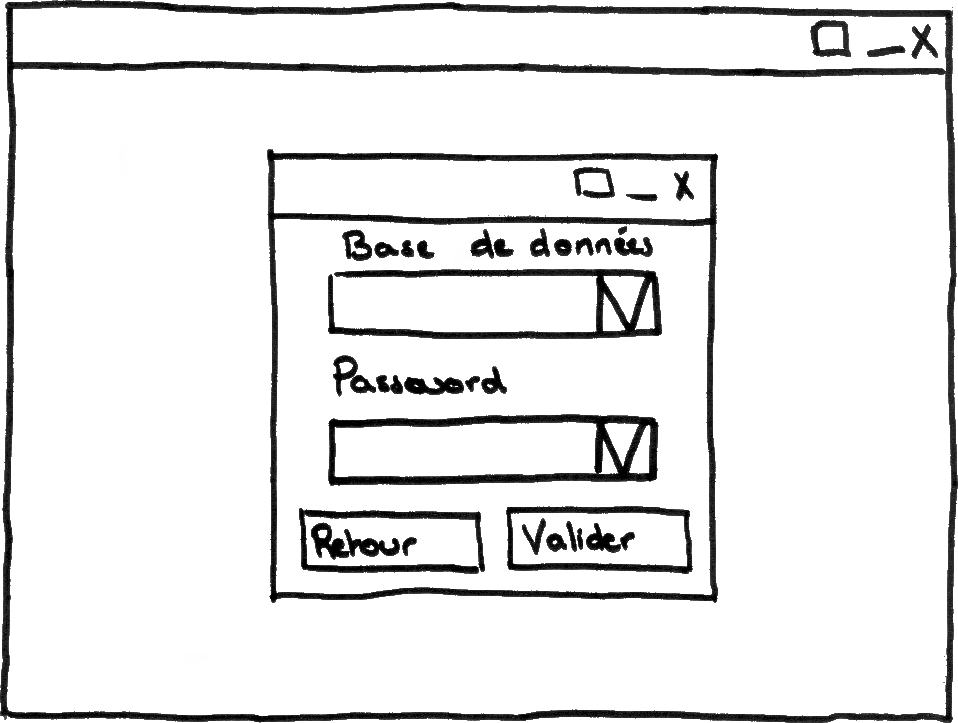 Base de données
Password
Retour
Valider